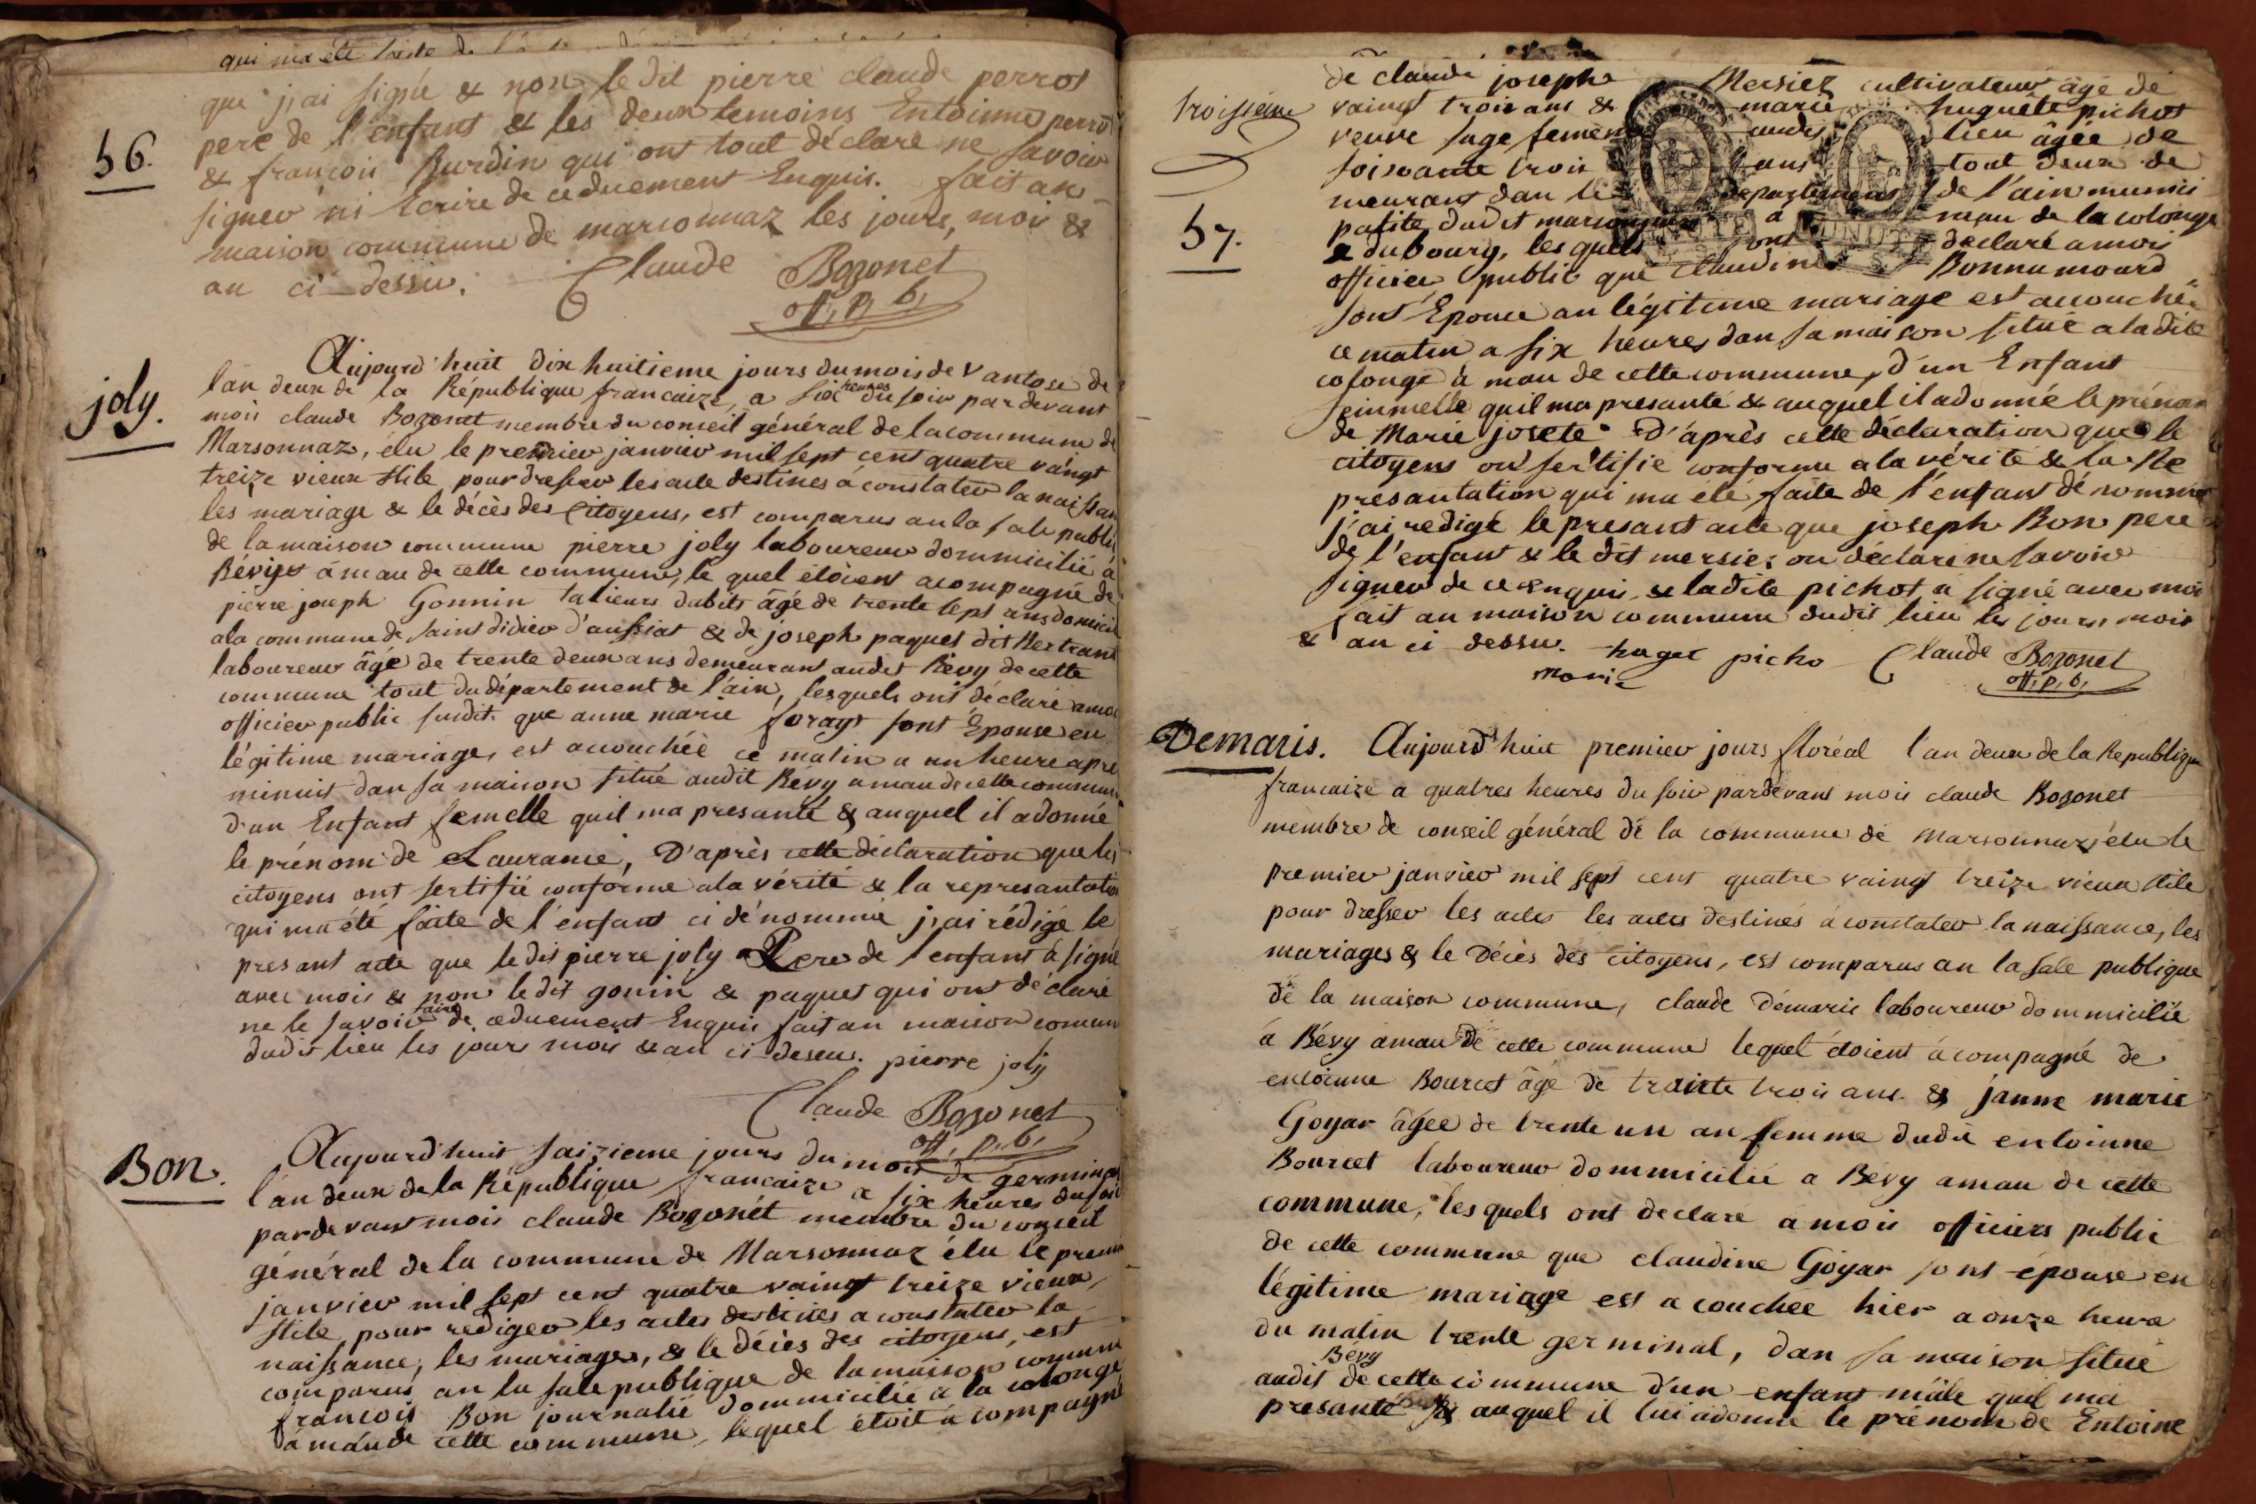 qui ma été faite de
que j'ai signé & non le dit pierre claude perrot
pere de l'enfant & les deux temoins Entoinne perro
& francois Burdin qui ont tout déclaré ne savoir
signer ni Ecrire de ceduement Enquis. fait an
maison commune de marsonnaz les jours, mois &
an ci dessu.
Claude Bozonet
off, p, b,
56.
joly.
Aujourd'huit dix huitieme jours du mois de vantose de
lan deux de la République francaize, a six heures du soir pardevant
mois claude Bozonet membre du conseil général de la commune de
Marsonnaz, élu le premier janvier mil sept cent quatre vaingt
treize vieux stile pour dresser les acte destines á constater la naissan
les mariage & le décès des Citoyens, est comparus an la sale publi
de la maison commune pierre joly laboureur dommicilié á
Bévy á mau de cette commune, le quel étoient acompagné de
pierre joseph Gonnin talieurs dabits âgé de trente sept ans domicil
a la commune de saint didier d'aussiat & de joseph paquet dit Bertrant
laboureur âgé de trente deux ans demeurant audit Bévy de cette
commune tout du département de l'ain, lesquels ont déclaré a moi
officier public susdit que anne marie forayt sont Epouse en
légitime mariage, est accouchée ce matin a un heure apre
minuit dan sa maison situé audit Bévy a mau de cette commune
d'un Enfant femelle quil ma presanté & auquel il adonné
le prénom de Lauranie, D'après cette déclaration que les
citoyens ont sertifié conforme ala vérité & la represantatio
qui ma été faite de l'enfant ci dénommé j'ai rédigé le
presant acte que le dit pierre joly Pere de l'enfant á signé
avec mois & non le dit gonin & paquet qui ont déclaré
ne le savoir faire de ceduement Enquis fait an maison comun
dudit lieu les jours mois & an ci deseu. pierre joly
Claude Bozonet
off, p, b,
Bon.
Aujourd'huit saizieme jours du mois de germinal
l'an deux de la République francaize a six heures du soir
pardevant mois claude Bozonét membre du conseil
général de la commune de Marsonnaz élu le premier
janvier mil sept cent quatre vaingt treize vieux
stile, pour rediger les actes destinés a constater la
naissance, les mariages, & le décès des citoyens, est
comparus an la sale publique de la maison commune
francois Bon journalié dommicilié á la colonge
á mau de cette commune, lequel étoit á compagné
troissieme
57.
de claude joseph Mersiez cultivateur âgé de
vaingt trois ans & marie huguete pichot
veuve sage femme audit lieu âgée de
soisvante trois ans tout deux de
meurant dan le département de l'ain munici
palite dudit marsonnaz a mau de la colonge
& dubourg, les quels ont déclaré a mois
officier public que Claudine Bonnumourd
sont Epouce an légitime mariage est accouché
ce matin a six heures dan sa maison situé a ladite
colonge à mau de cette commune, d'un Enfant
feimmelle quil ma presanté & auquel il adonné le prénom
de Marie josete D'après cette déclaration que le
citoyens on sertifie conforme a la vérité & la Re
presantation qui ma été faite de l'enfant dénommé
j'ai redigé le presant acte que joseph Bon pere
de l'enfant & le dit mersier on déclare ne savoir
signer de ce enquis, & ladite pichot a signé avec moi
fait an maison commune dudit lieu les jours mois
& an ci dessu. huget picho Claude Bozonet
marie
off, p, b,
Demaris.
Aujourd'huit premier jours floréal l'an deux de la Republique
francaize a quatres heures du soir pardevant mois claude Bozonet
membre de conseil général de la commune de marsonnaz élu le
premier janvier mil sept cent quatre vaingt treize vieux stile
pour dresser les actes les actes destinés á constater la naissance, les
mariages & le Décès des citoyens, est comparus an la sale publique
de la maison commune, claude démaris laboureur dommicilié
á Bévy á mau de cette commune lequel étoient ácompagné de
entoinne Bourcet âgé de trainte trois ans & janne marie
Goyar âgée de trente un an femme dudit entoinne
Bourcet laboureur dommicilié a Bevy a mau de cette
commune, les quels ont declare a mois officiers public
de cette commune que claudine Goyar sont épouse en
légitime mariage est a couchée hier a onze heure
du matin trente germinal, dan sa maison situé
audit Bévy de cette commune d'un enfant mâle quil ma
presanté & auquel il lui adonné le prénom de Entoine